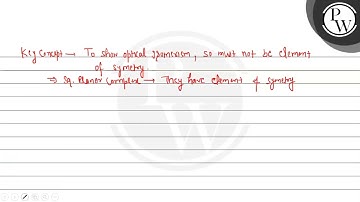 PW
Key Concept → To show optical isomerism, so must not be element
of symetry.
⇒ Sq. Planer Complex → They have element of symetry